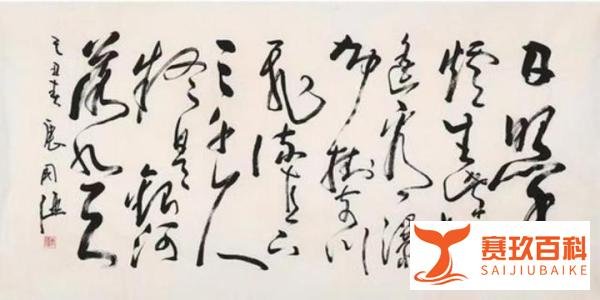 日照
爐生紫
遥看瀑
布掛前川
飛流直下
三千尺
疑是銀河
落九天
己丑春
赛玖百科
SAIJIUBAIKE